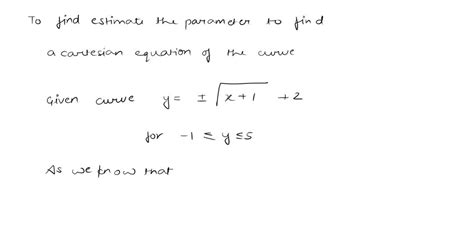 To find estimate the parameter to find
a cartesian equation of the curve
Given curve y = ± √(x+1) + 2
for -1 ≤ y ≤ 5
As we know that